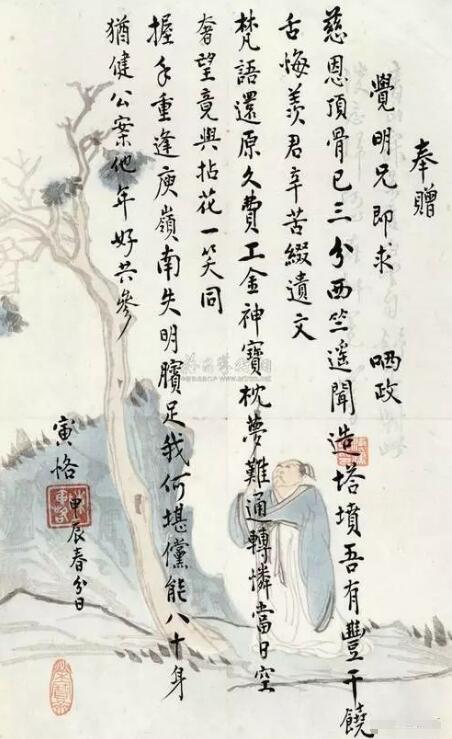 奉贈
覺明兄即求 哂政
慈恩頂骨已三分西竺遥聞造塔墳吾有豐干饒
舌悔羨君辛苦綴遺文
梵語還原久費工金神寶枕夢難通轉憐當日空
奢望竟與拈花一笑同
握手重逢庾嶺南失明臏足我何堪儻能八十身
猶健公案他年好共參
寅恪
甲辰春分日